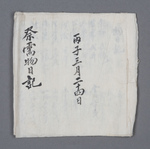 丙子三月二十四日
祭需物目記